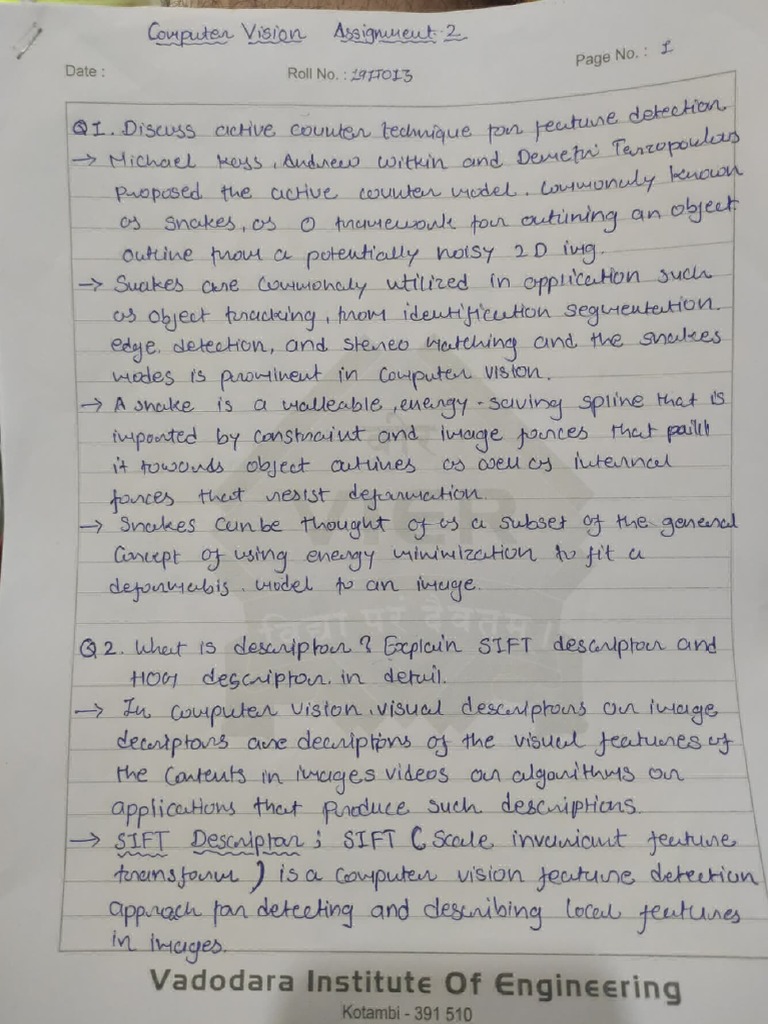 Computer Vision Assignment-2
Date :
Roll No. : 19IT013
Page No. : 1
Q1. Discuss active counter technique for feature detection
→ Michael Kass, Andrew Witkin and Demetri Terzopoulos
proposed the active counter model. Commonly known
as snakes, as a framework for outlining an object
outline from a potentially noisy 2D img.
→ Snakes are commonly utilized in application such
as object tracking, from identification segmentation.
edge detection, and stereo matching and the snakes
modes is prominent in computer vision.
→ A snake is a malleable, energy-saving spline that is
imported by constraint and image forces that pull
it towards object outlines as well as internal
forces that resist deformation.
→ Snakes can be thought of as a subset of the general
Concept of using energy minimization to fit a
model to an image.
Q2. What is descriptor? Explain SIFT descriptor and
HOG descriptor in detail.
→ In computer vision, visual descriptors or image
decriptors are decriptions of the visual features of
the contents in images videos or algorithms or
applications that produce such descriptions.
→ SIFT Descriptor ; SIFT ( Scale invariant feature
transform ) is a computer vision feature detection
approch for detecting and describing local features
in images.
VIER
Vadodara Institute Of Engineering
Kotambi - 391 510